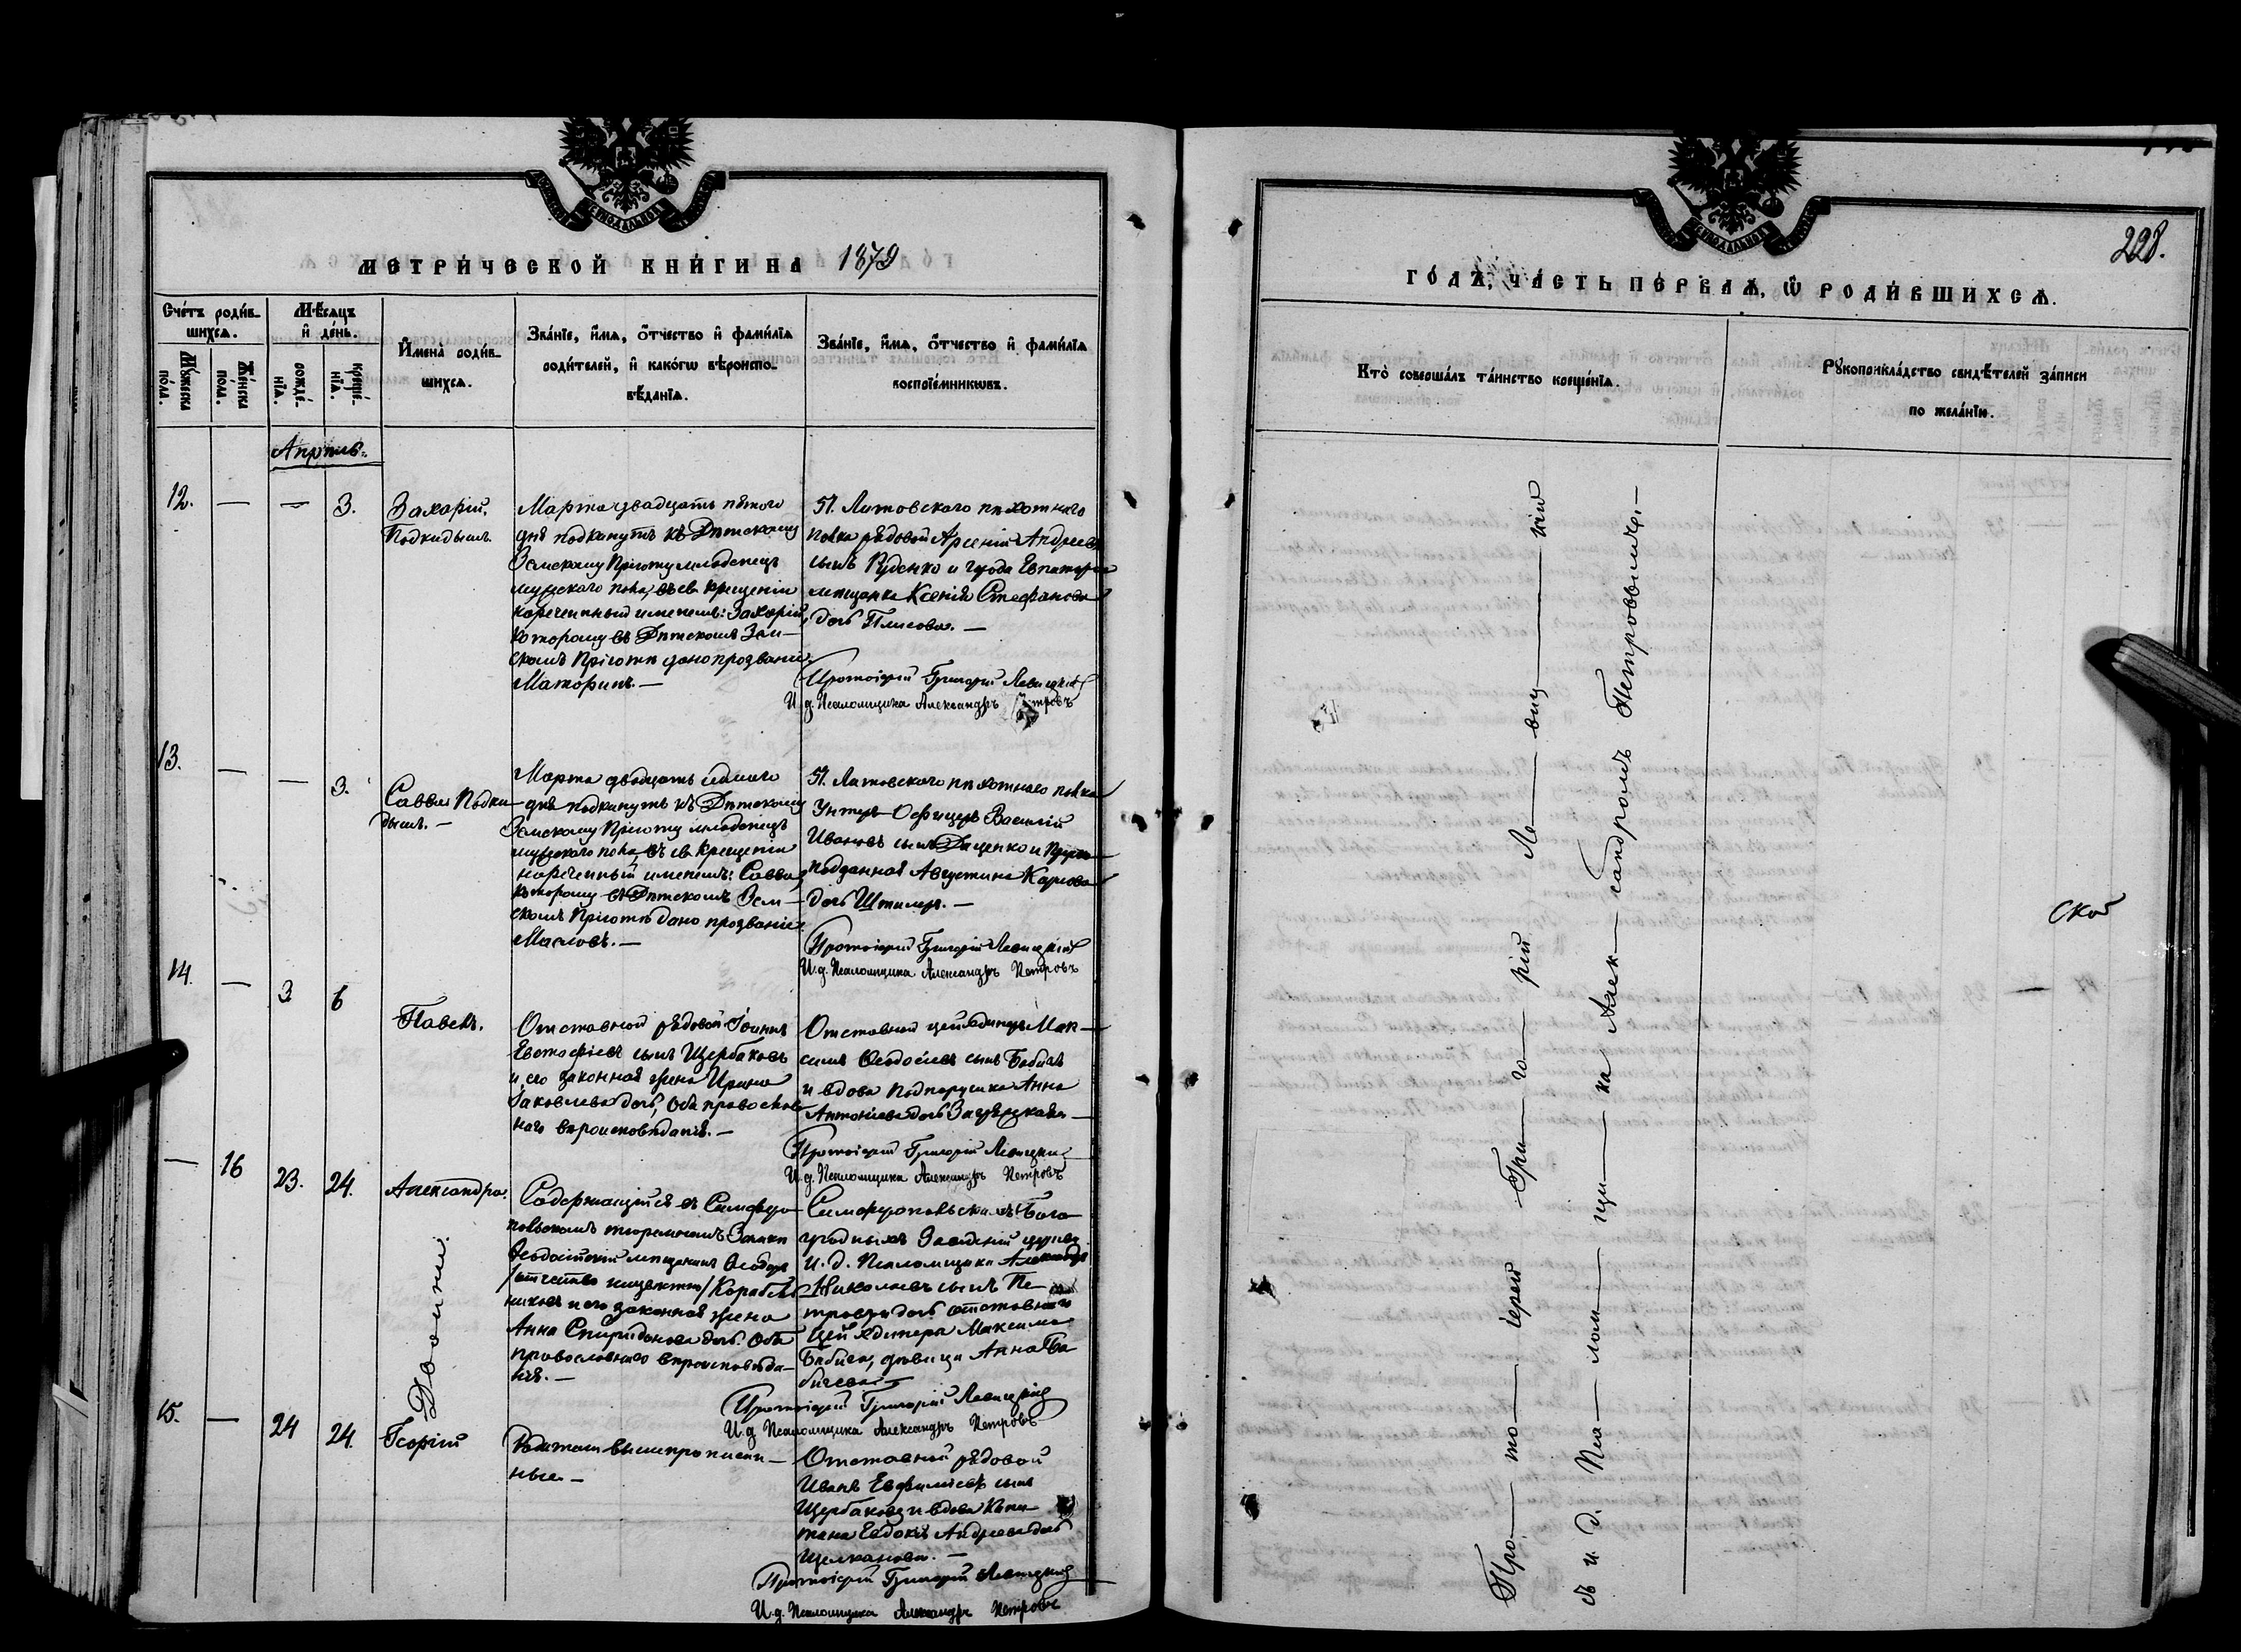 МЕТРИ́ЧЕСКОЙ КНИ́ГИ НА 1879
Сче́тъ роди́в-
шихсѧ.
Мѣ́сѧцъ
и҆ де́нь.
Мꙋ́жеска
по́ла.
Же́нска
по́ла.
рожде́-
нїѧ.
креще́-
нїѧ.
И҆мена̀ роди́в-
шихсѧ.
Зва́нїе, и҆́мѧ, ѻ҆́тчество и҆ фами́лїѧ
роди́телей, и҆ како́гѡ вѣроиспо-
вѣ́данїѧ.
Зва́нїе, и҆́мѧ, ѻ҆́тчество и҆ фами́лїѧ
воспрїе́мникѡвъ.
Апрѣль.
12. — — 3.
Захарій.
Подкидышъ.
Марта двадцать пятого
дня подкинутъ къ Дѣтскому
Земскому Пріюту младенецъ
мужскаго пола, въ св. крещеніи
нареченный именемъ: Захарій,
которому въ Дѣтскомъ Зем-
скомъ Пріютѣ дано прозваніе
Маторинъ. —
51. Литовскаго пѣхотнаго
полка рядовой Арсеній Андреевъ
сынъ Руденко и города Евпаторіи
мѣщанка Ксенія Стефанова
дочь Плисова. —
Протоіерей Григорій Левицкій
И. д. Псаломщика Александръ Петровъ
13. — — 3.
Савва Подки-
дышъ. —
Марта двадцать седмаго
дня подкинутъ къ Дѣтскому
Земскому Пріюту младенецъ
мужскаго пола, въ св. крещеніи
нареченный именемъ: Савва,
которому въ Дѣтскомъ Зем-
скомъ Пріютѣ дано прозваніе
Масловъ. —
51. Литовскаго пѣхотнаго полка
Унтеръ-Офицеръ Василій
Ивановъ сынъ Даценко и
подданная Августина Карлова
дочь Штилеръ. —
Протоіерей Григорій Левицкій
И. д. Псаломщика Александръ Петровъ
14. — 3 6
Павелъ.
Отставной рядовой Іоаннъ
Евтофіевъ сынъ Щербаковъ
и его законная жена Ирина
Іаковлева дочь, оба православ-
наго вѣроисповѣданія. —
Отставной Мак-
симъ Ѳеодосіевъ сынъ Бабичъ
и вдова Подпоручика Анна
Антоніева дочь
Протоіерей Григорій Левицкій
И. д. Псаломщика Александръ Петровъ
— 16 23. 24.
Александра.
Двойни.
Содержащійся въ Симферо-
польскомъ тюремномъ Замкѣ
Ѳеодосійскій мѣщанинъ Ѳеодоръ
/отчество неизвѣстно/ Корабель-
никовъ и его законная жена
Анна Спиридонова дочь. Оба
православнаго вѣроисповѣда-
нія. —
Симферопольскихъ Бого-
угодныхъ Заведеній церкви
И. д. Псаломщика Александръ
Николаевъ сынъ Пе-
тровъ и дочь отставнаго
Максима
Бабича, дѣвица Анна Ба-
бичева —
Протоіерей Григорій Левицкій
И. д. Псаломщика Александръ Петровъ
15. — 24 24.
Георгій
Родители вышепрописан-
ные. —
Отставной рядовой
Иванъ Евфиміевъ сынъ
Щербаковъ и вдова Капи-
тана Евдокія Андреева дочь
Щелканова. —
Протоіерей Григорій Левицкій
И. д. Псаломщика Александръ Петровъ
228.
ГО́ДЪ, ЧА́СТЬ ПЕ́РВАѦ, Ѡ҆ РОДИ́ВШИХСѦ.
Кто̀ соверша́лъ та́инство креще́нїѧ.
Рꙋкоприкла́дство свидѣ́телей за́писи
по жела́нїю.
Про — то — іерей Гри — го — рій Ле — виц — кій
съ и. д. Пса — лом — щи — ка Алек — сандромъ Петровымъ. —
ской